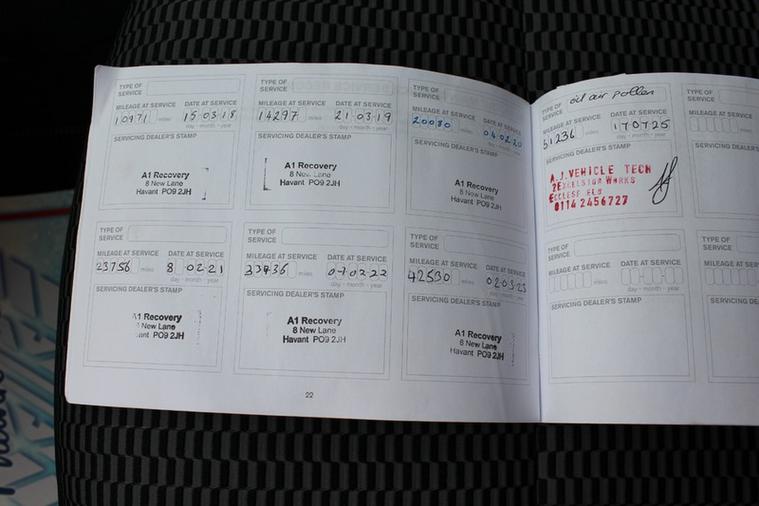 TYPE OF
SERVICE
MILEAGE AT SERVICE DATE AT SERVICE
10971 miles 15 03 18
day - month - year
SERVICING DEALER'S STAMP
A1 Recovery
8 New Lane
Havant PO9 2JH
TYPE OF
SERVICE
MILEAGE AT SERVICE DATE AT SERVICE
14297 miles 21 03 19
day - month - year
SERVICING DEALER'S STAMP
A1 Recovery
8 New Lane
Havant PO9 2JH
TYPE OF
SERVICE
MILEAGE AT SERVICE DATE AT SERVICE
20080 miles 04 02 20
day - month - year
SERVICING DEALER'S STAMP
A1 Recovery
8 New Lane
Havant PO9 2JH
TYPE OF
SERVICE oil air pollen
MILEAGE AT SERVICE DATE AT SERVICE
51236 miles 17 07 25
day - month - year
SERVICING DEALER'S STAMP
A.J. VEHICLE TECH
2 EXCELSIOR WORKS
0114 2456727
TYPE OF
SERVICE
MILEAGE AT SERVICE
SERVICING DEALER'S
TYPE OF
SERVICE
MILEAGE AT SERVICE DATE AT SERVICE
23756 miles 8 02 21
day - month - year
SERVICING DEALER'S STAMP
A1 Recovery
8 New Lane
Havant PO9 2JH
TYPE OF
SERVICE
MILEAGE AT SERVICE DATE AT SERVICE
miles 07 02 22
day - month - year
SERVICING DEALER'S STAMP
A1 Recovery
8 New Lane
Havant PO9 2JH
TYPE OF
SERVICE
MILEAGE AT SERVICE DATE AT SERVICE
42530 miles 02 03 23
day - month - year
SERVICING DEALER'S STAMP
A1 Recovery
8 New Lane
Havant PO9 2JH
TYPE OF
SERVICE
MILEAGE AT SERVICE DATE AT SERVICE
miles
day - month - year
SERVICING DEALER'S STAMP
TYPE OF
SERVICE
MILEAGE AT SERVICE
SERVICING DEALER'S
22